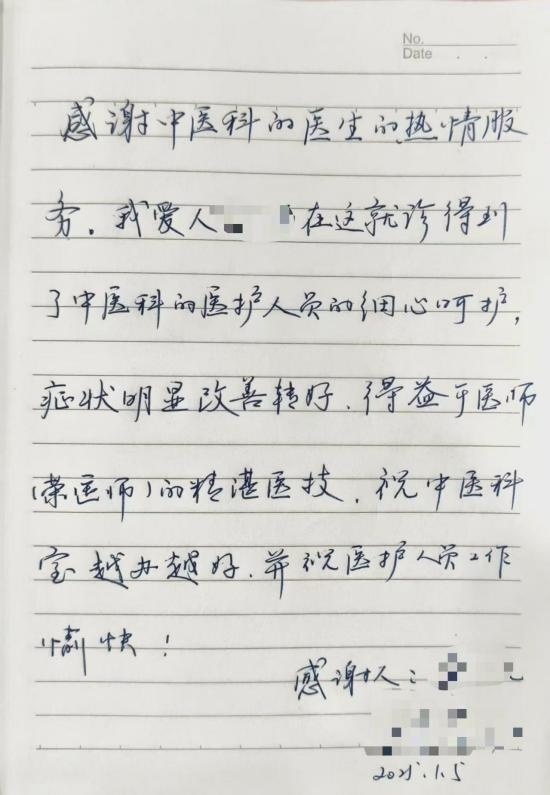 No.
Date . .
感谢中医科的医生的热情服
务。我爱人 在这就诊得到
了中医科的医护人员的细心呵护，
症状明显改善转好、得益于医师
（荣医师）的精湛医技、祝中医科
室越办越好、并祝医护人员工作
愉快！
感谢人：
2025.1.5